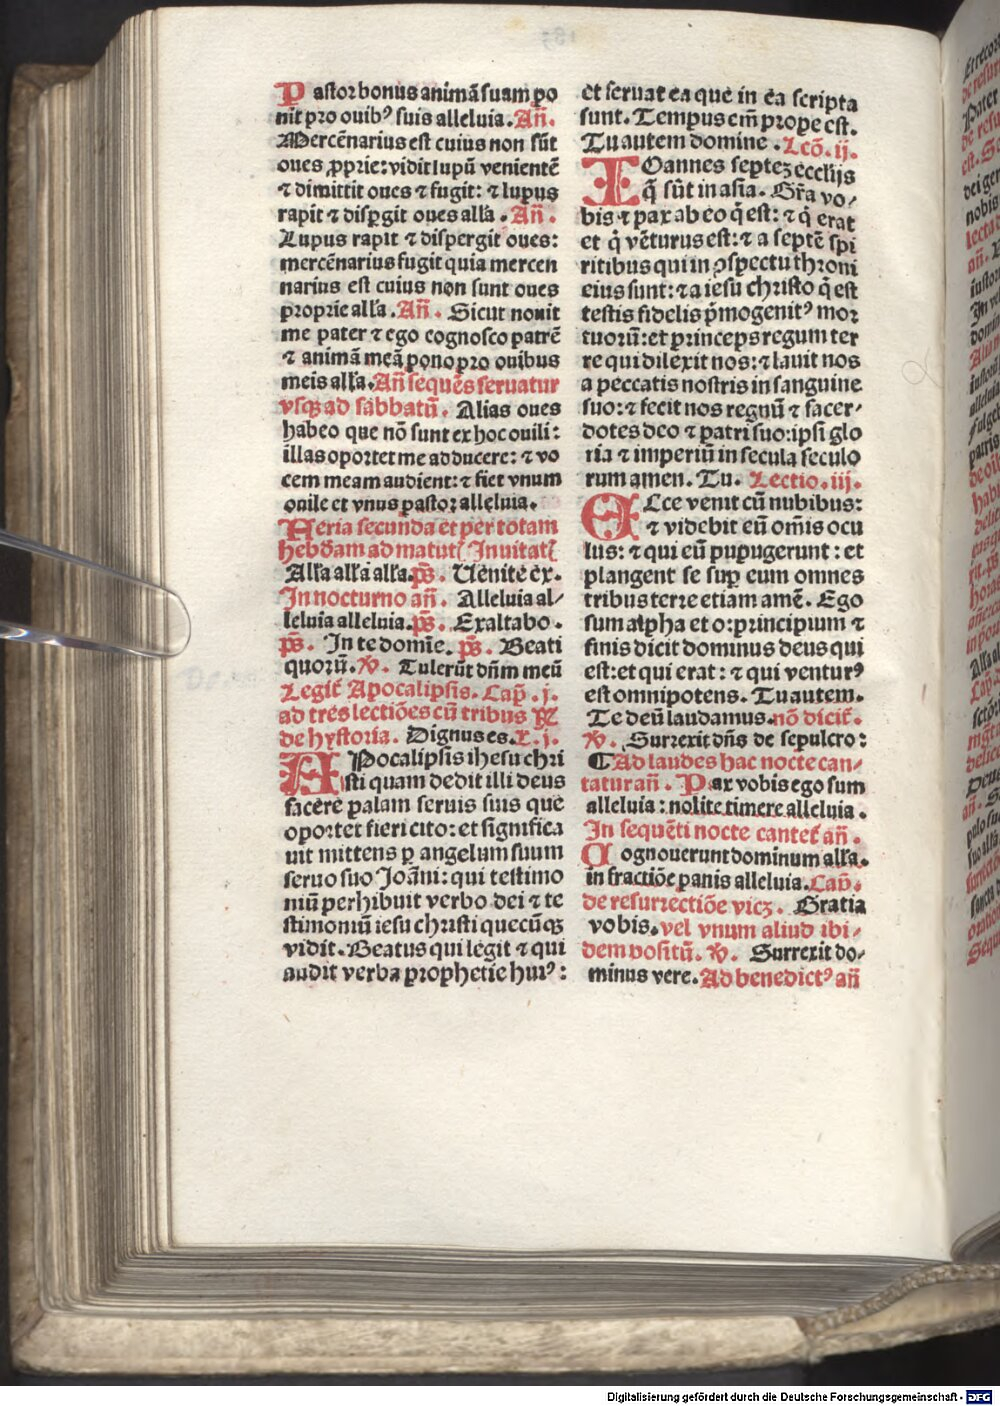 Pastor bonus animā suam po
nit pro ovibꝰ suis alleluia. Añ.
Mercēnarius est cuius non sūt
oues ꝓprie: vidit lupū venientē
⁊ dimittit oues ⁊ fugit: ⁊ lupus
rapit ⁊ disꝑgit oues alľa. Añ.
Lupus rapit ⁊ dispergit oues:
mercēnarius fugit quia mercen
narius est cuius non sunt oues
proprie alľa. Añ. Sicut nouit
me pater ⁊ ego cognosco patrē
⁊ animā meā pono pro ouibus
meis alľa. Añ sequēs seruatur
vsqꝫ ad sabbatū. Alias oues
habeo que nō sunt ex hoc ouili:
illas oportet me adducere: ⁊ vo
cem meam audient: ⁊ fiet vnum
ouile et vnus pastor alleluia.
Feria secunda et per totam
hebdam ad matutꝭ Inuitatꝭ
Alľa alľa alľa. p̄s. Uenite ex.
In nocturno añ. Alleluia al⸗
leluia alleluia. p̄s. Exaltabo.
p̄s. In te domīe. p̄s. Beati
quorū. ℣. Tulerūt dn̄m meū
Legit̄ Apocalipsis. Cap̄. j.
ad tres lectiōes cū tribus ℞
de hystoria. Dignus es. L. j.
APocalipsis ihesu chri
sti quam dedit illi deus
facere palam seruis suis que
oportet fieri cito: et significa
uit mittens ꝑ angelum suum
seruo suo Joāni: qui testimo
niū perhibuit verbo dei ⁊ te
stimoniū iesu christi quecūqꝫ
vidit. Beatus qui legit ⁊ qui
audit verba prophetie huiꝰ:
et seruat ea que in ea scripta
sunt. Tempus em̄ prope est.
Tu autem domine. Lcō. ij.
IOannes septeꝫ ecclijs
q̄ sūt in asia. Gr̄a vo⸗
bis ⁊ pax ab eo q̇ est: ⁊ q̇ erat
et q̇ vēturus est: ⁊ a septē spi
ritibus qui in ꝯspectu throni
eius sunt: ⁊ a iesu christo q̇ est
testis fidelis p̄mogenitꝰ mor
tuorū: et princeps regum ter
re qui dilexit nos: ⁊ lauit nos
a peccatis nostris in sanguine
suo: ⁊ fecit nos regnū ⁊ sacer⸗
dotes deo ⁊ patri suo: ipsi glo
ria ⁊ imperiū in secula seculo
rum amen. Tu. Lectio. iij.
ECce venit cū nubibus:
⁊ videbit eū om̄is ocu
lus: ⁊ qui eū pupugerunt: et
plangent se suꝑ eum omnes
tribus terre etiam amē. Ego
sum alpha et o: principium ⁊
finis dicit dominus deus qui
est: et qui erat: ⁊ qui venturꝰ
est omnipotens. Tu autem.
Te deū laudamus. nō dicit̄.
℣. Surrexit dn̄s de sepulcro:
¶ Ad laudes hac nocte can⸗
tatur añ. Pax vobis ego sum
alleluia: nolite timere alleluia.
In sequēti nocte cantet̄ añ.
Cognouerunt dominum alľa.
in fractiōe panis alleluia. Cap̄.
de resurrectiōe viꝫ. Gratia
vobis. vel vnum aliud ibi⸗
dem positū. ℣. Surrexit do⸗
minus vere. Ad benedictꝰ añ
Digitalisierung gefördert durch die Deutsche Forschungsgemeinschaft - DFG